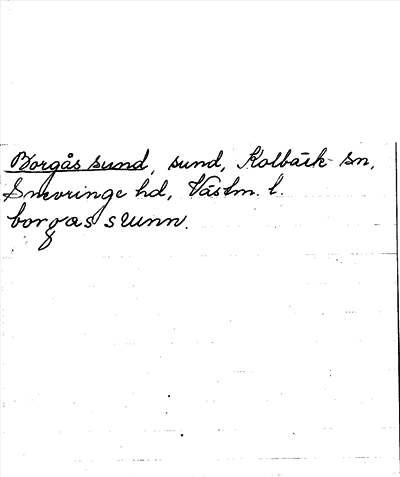 Borgås sund, sund, Kolbäck sn,
Snevringe hd, Västm. l.
borgas sunn.